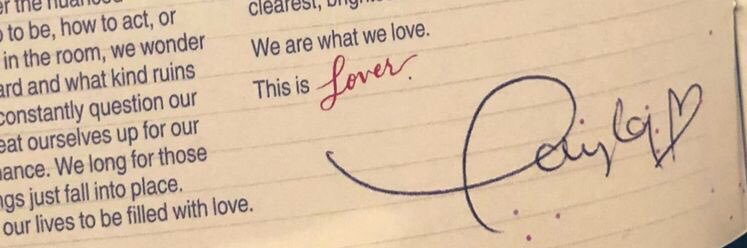 to be, how to act, or
in the room, we wonder
and what kind ruins
constantly question our
eat ourselves up for our
ance. We long for those
ngs just fall into place.
our lives to be filled with love.
clearest,
We are what we love.
This is Lover.